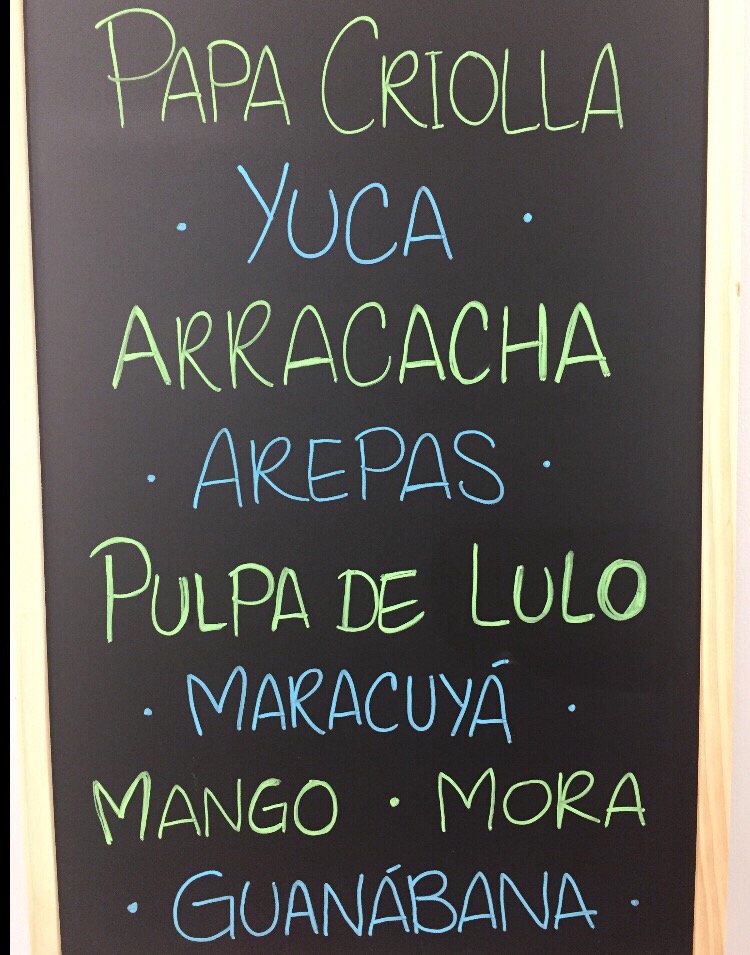 PAPA CRIOLLA
· YUCA ·
ARRACACHA
· AREPAS ·
PULPA DE LULO
· MARACUYÁ ·
MANGO · MORA
· GUANÁBANA ·